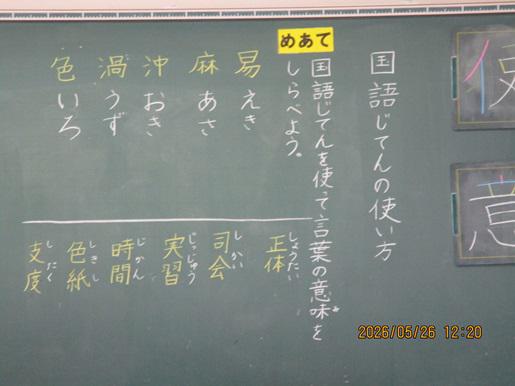 国語じてんの使い方
めあて
国語じてんを使って言葉の意味を
しらべよう。
易 えき
麻 あさ
沖 おき
渦 うず
色 いろ
正体 しょうたい
司会 しかい
実習 じっしゅう
時間 じかん
色紙 しきし
支度 したく
使
意
2026/05/26 12:20